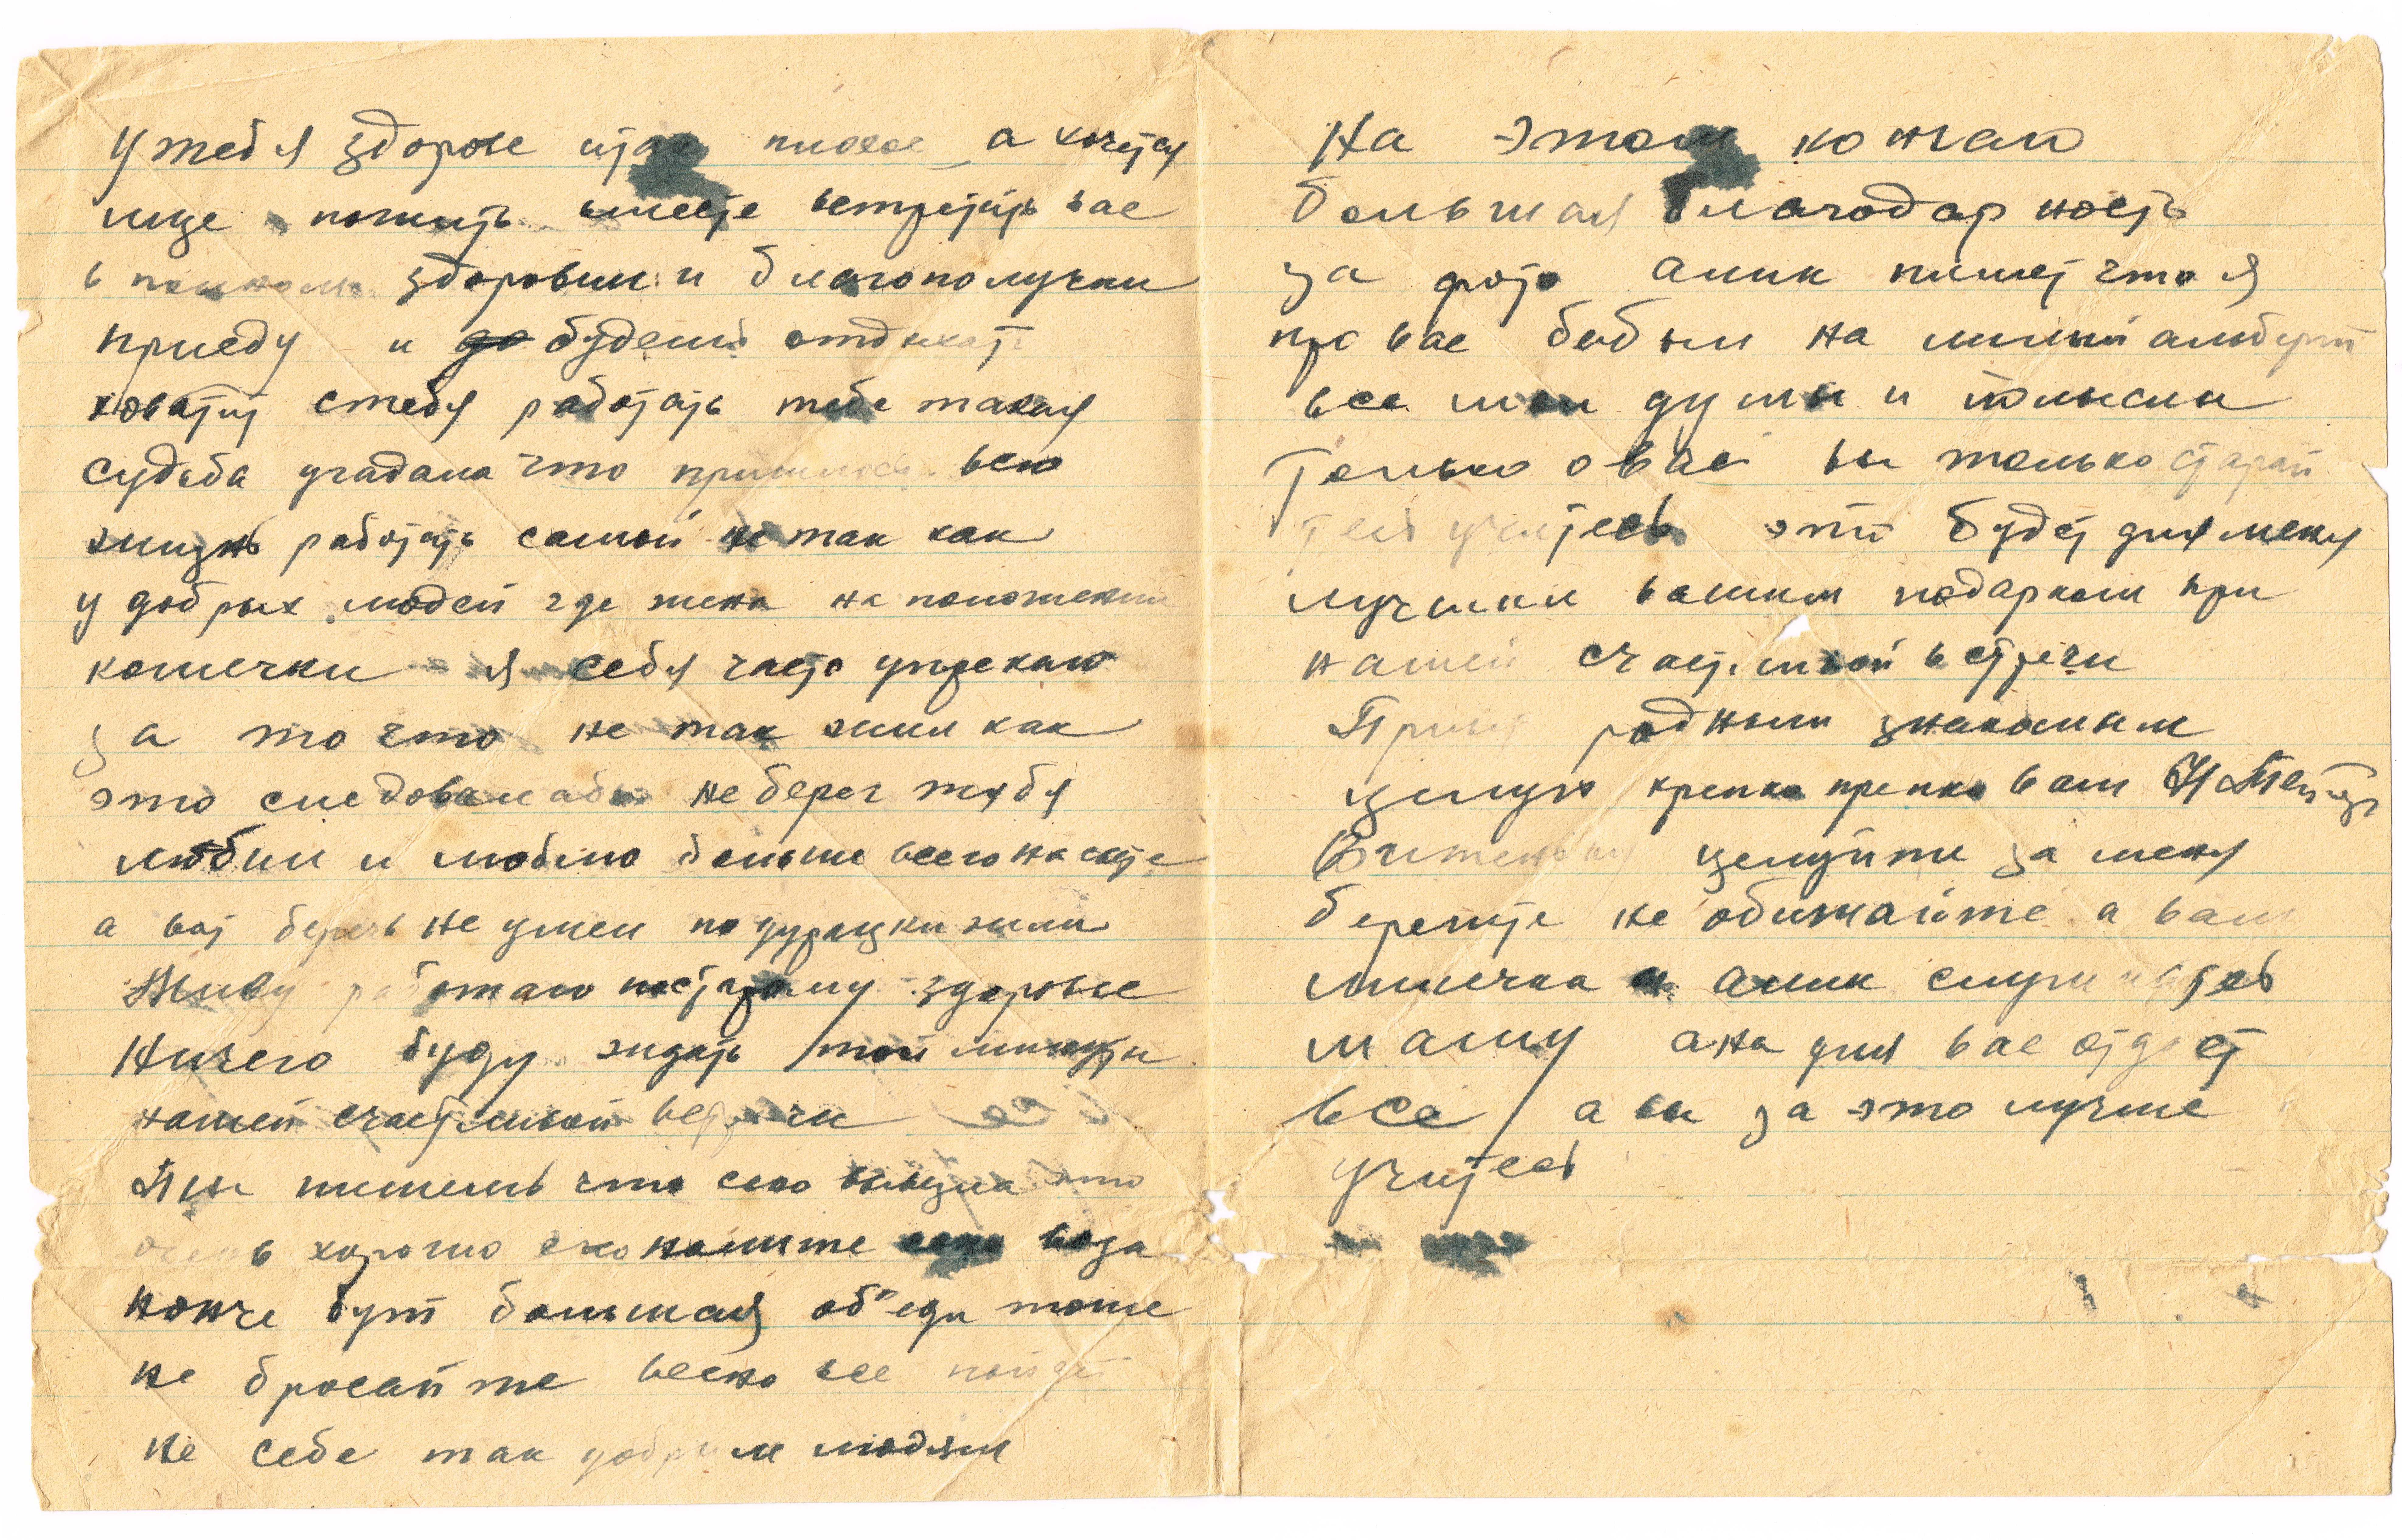 у тебя здорове стало плохое а хочется
еще пожить вместе встретить вас
в полном здоровии и благополучии
приеду и будеш отдыхат
ховатит стебя работать тебе такая
судьба угадана что пришлось всю
жизнь работать самой не так как
у добрых людей где жена на положении
кошечки я себя часто упрекаю
за то что не так жил как
это следовалабы не берег тебя
любил и люблю больше всего на свете
а вот беречь не умел по дурацки жили
Живу работаю постарому здоровье
Ничего буду ждать той минуты
нашей счастливой встречи
Ты пишешь что сено
очень хорошо економите сено вода
нонче бут большая об"еди тоже
не бросайте весно все пойдет
не себе так добрым людям
На этом кончаю
большая благодарность
за фото алик пишет что я
про вас бабыл на милый альберт
все мои думы и мысли
Только о вас вы только старай
тесь учитесь это будет для меня
лучшим вашим подарком при
нашей счастливой встречи
Привет родным знакомым
целую крепко крепко ваш
Витеньку целуйте за меня
берегите не обижайте а вам
милечка и алик слушайтесь
маму ана для вас отдает
все а вы за это лучше
учитесь